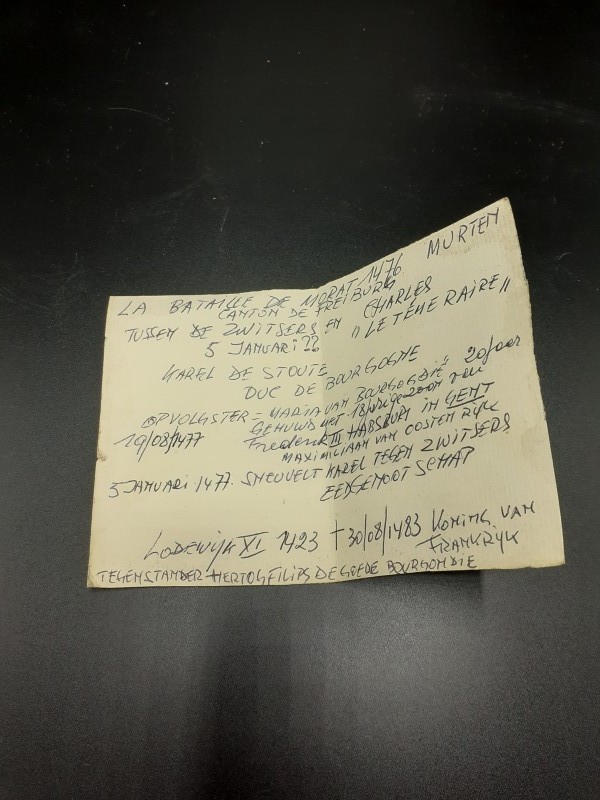 LA BATAILLE DE MORAT 1476 MURTEN
CANTON DE FREIBURG
TUSSEN DE ZWITSERS EN CHARLES
5 JANUARI ?? "LE TÉMÉRAIRE"
KAREL DE STOUTE
DUC DE BOURGOGNE
OPVOLGSTER = MARIA VAN BOURGONDIË 20 jaar
GEHUWD MET 18 jarige zoon van
19/08/1477 Frederik III HABSBURG IN GENT
MAXIMILIAAN VAN OOSTENRYK
5 JANUARI 1477. SNEUVELT KAREL TEGEN ZWITSERS
EEDGENOOTSCHAP
LODEWIJK XI 1423 † 30/08/1483 KONING VAN
FRANKRYK
TEGENSTANDER HERTOG FILIPS DE GOEDE BOURGONDIE